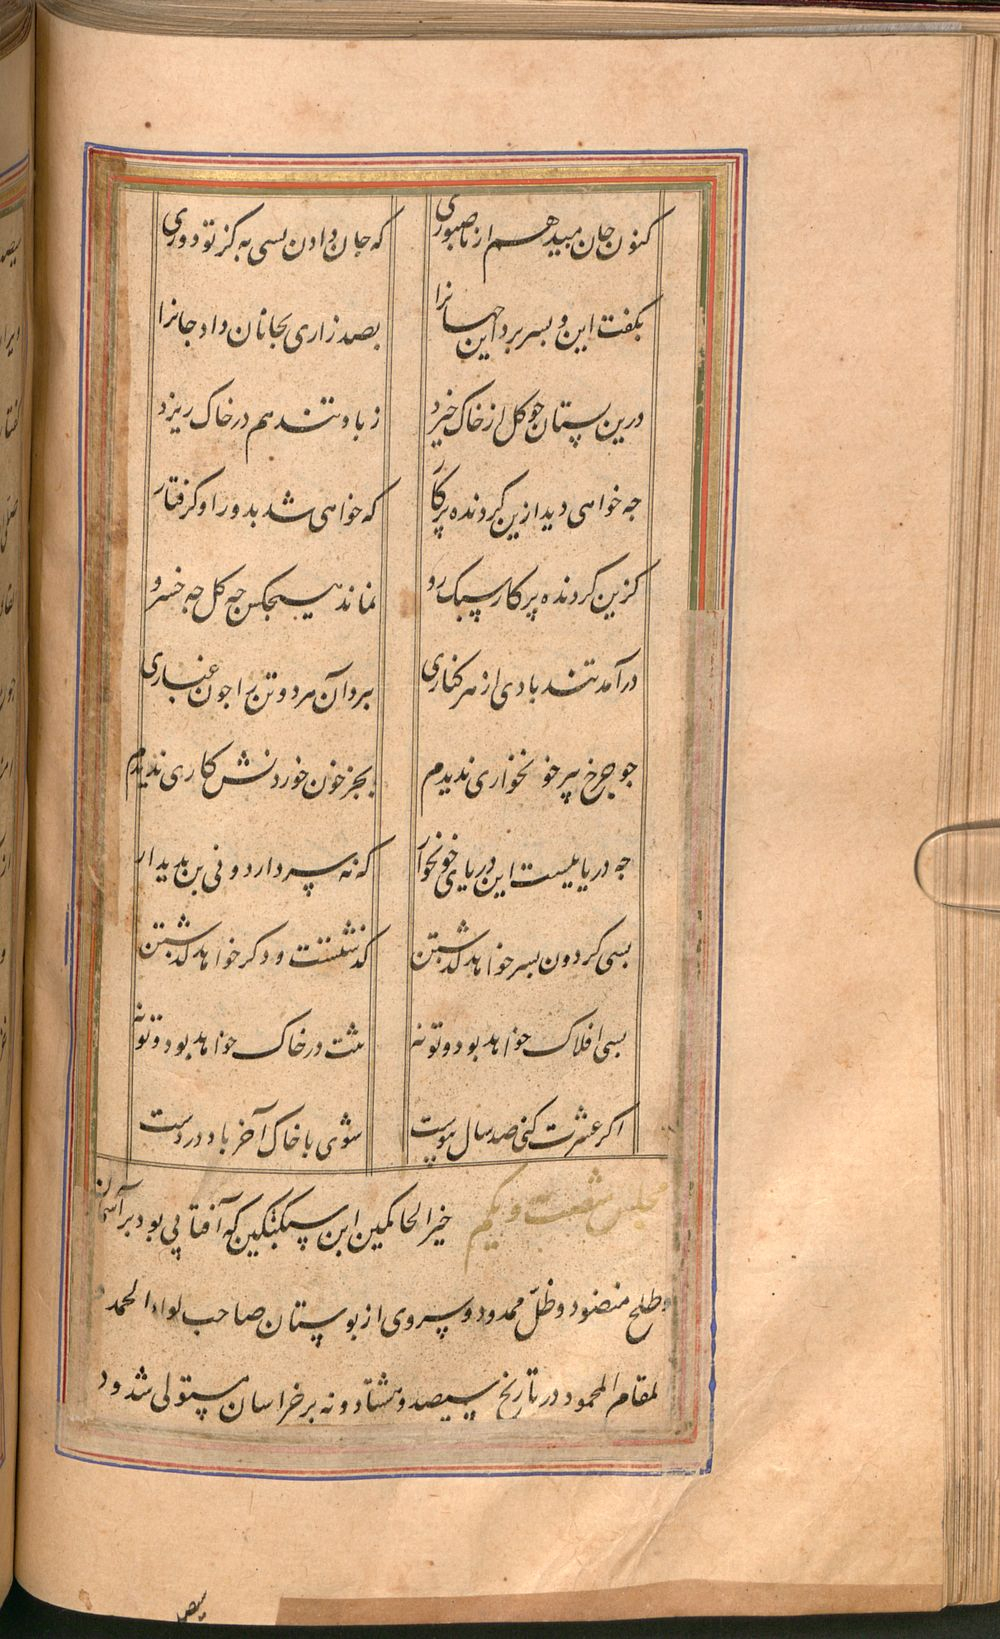 کنون جان میدهم از ناصبوری که جان دادن بسی به کز تو دوری
بکفت این و بسر برد این جهانرا بصد زاری بجانان داد جانرا
درین بستان جو کل از خاک خیزد ز باد تند هم در خاک ریزد
جه خواهی دید ازین کردنده پرکار که خواهی شد بدور او کرفتار
کزین کردنده پرکار سبک رو نماند هیجکس جه کل جه خسرو
درآمد تند بادی از هر کناری ببرد آن هر دو تن را جون غباری
جو جرخ پیر خونخواری ندیدم بجز خون خوردنش کاری ندیدم
جه دریاییست این دریای خونخوار که نه سر دارد و نی بن بدیدار
بسی کردون بسر خواهد کذشتن کذشتست و دکر خواهد کذشتن
بسی افلاک خواهد بود و تو نه تنت در خاک خواهد بود و تو نه
اکر عشرت کنی صد سال پیوست شوی با خاک آخر باد در دست
مجلس شصت و یکم خیر الحاکمین ابن سبکتکین که آفتابی بود بر آسمان
و طلح منضود و ظل ممدود و سروی از بوستان صاحب لواء الحمد
لمقام المحمود در تاریخ سیصد و هشتاد و نه بر خراسان مستولی شد و د
سیصد